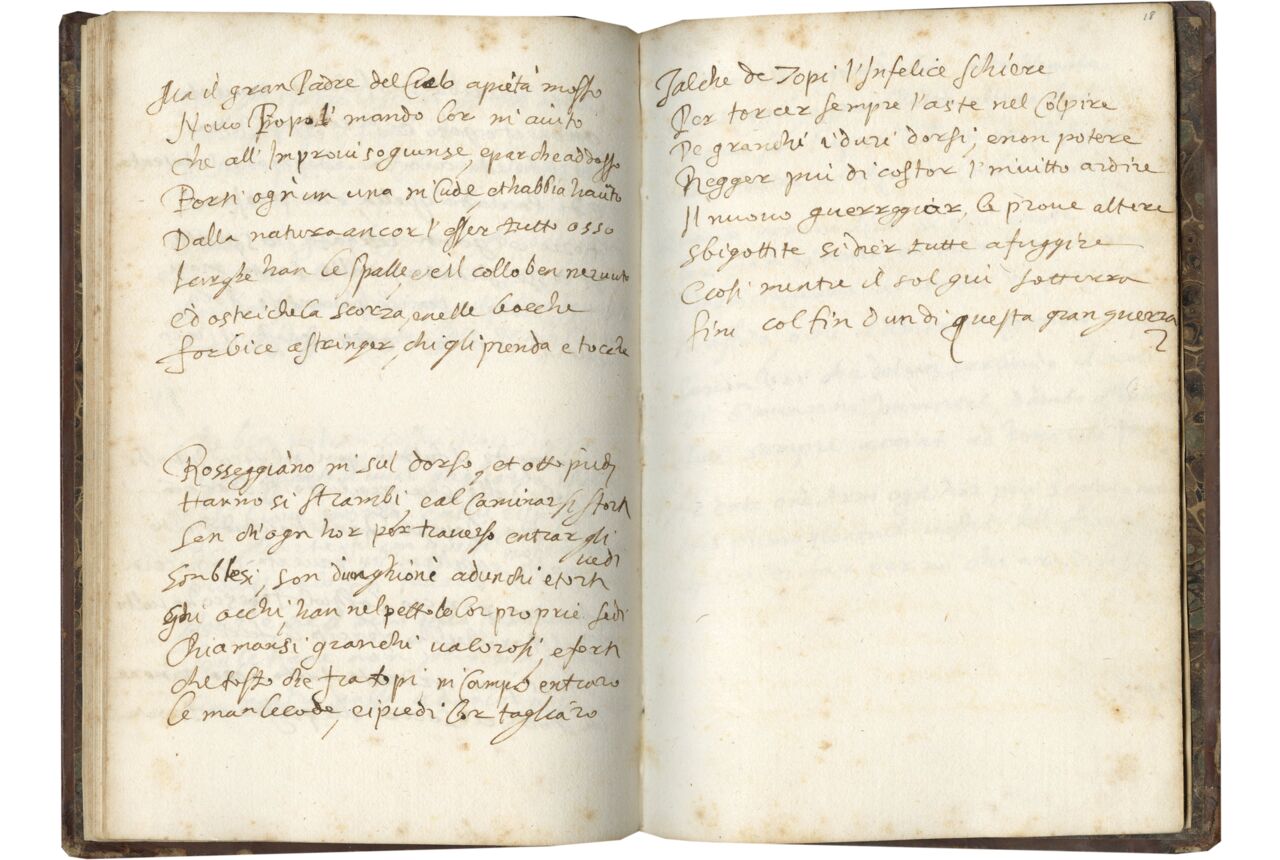 Ma il gran Padre del Cielo a pietà mosso
Novo Popol mandò lor in aiuto
Che all'Improviso giunse, e par che addosso
Porti ogn'un una incude, et habbia hauuto
Dalla natura ancor l'esser tutto osso
Larghe han le spalle, et il collo ben neruuto
E d'ostriche la scorza, e nelle bocche
Forbice a stringer, chi gli prenda e tocche
Rosseggiano in sul dorso, et otto piedi
Hanno si strambi e al caminar si storti
Sen ch'ogn'hor per trauerso entrar gli
uedi
Son blesi, son d'unghione adunchi e torti
Ghi occhi, han nel petto le lor proprie sedi
Chiamansi granchi ualorosi, e forti
che tosto che fra topi in Campo entraro
le man le code, e i piedi lor tagliaro
18
Talche de Topi l'Infelice schiere
Per torcer sempre l'aste nel Colpire
De granchi i duri dorsi, e non potere
Regger piu di costor l'inuitto ardire
Il nuouo guerreggiar, le proue altere
Sbigottite si dier tutte a fuggire
E cosi mentre il sol qui sotterra
fini col fin d'un di questa gran guerra